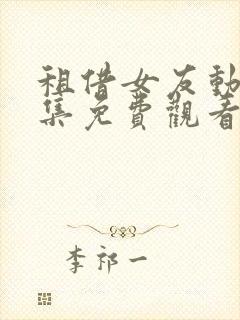 租借女友動
集免費觀看
李祁一